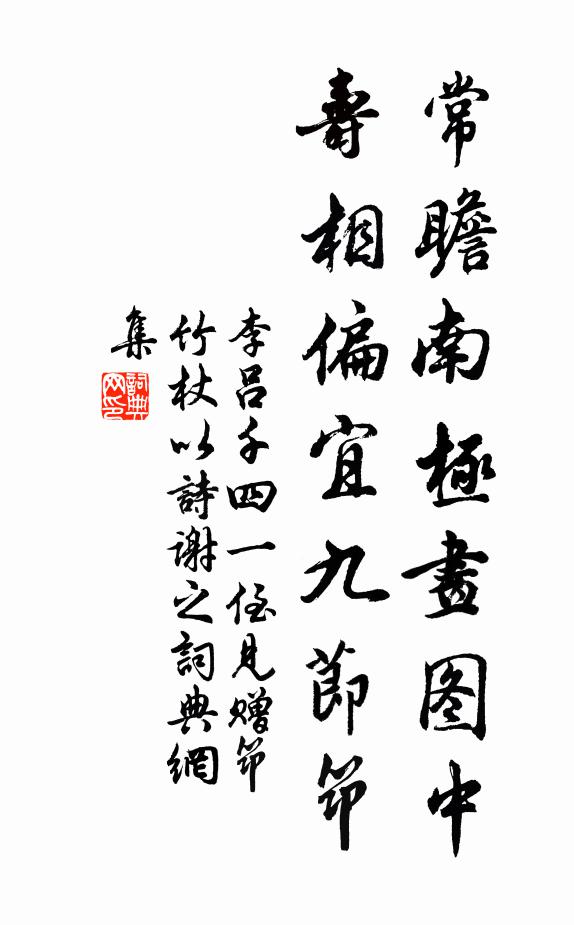 常瞻南極畫图中
壽相偏宜九節筇
李呂千四一侄見贈筇
竹杖以詩謝之詞典網
集
詞典
网印